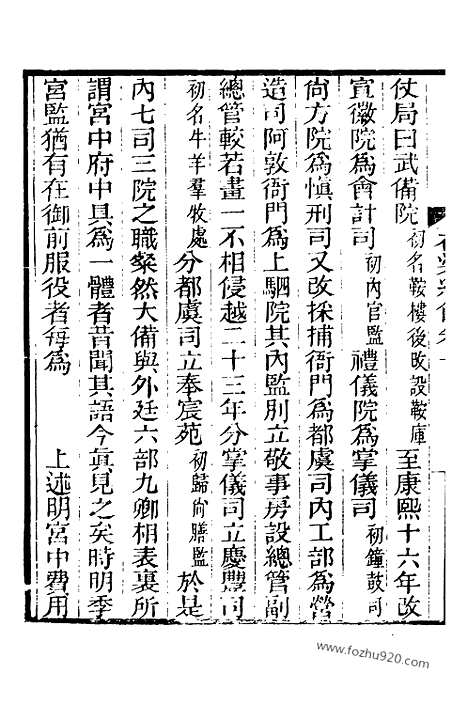 仗局曰武備院初名鞍樓後改設鞍庫至康熙十六年改
宣徽院為會計司初內官監禮儀院為掌儀司初鐘鼓司
尙方院為愼刑司又改採捕衙門為都虞司內工部為營
造司阿敦衙門為上駟院其內監別立敬事房設總管副
總管較若畫一不相侵越二十三年分掌儀司立慶豐司
初名牛羊羣牧處分都虞司立奉宸苑初歸尙膳監於是
內七司三院之職粲然大備與外廷六部九卿相表裏所
謂宮中府中具為一體者昔聞其語今眞見之矣時明季
宮監猶有在御前服役者每為 上述明宮中費用
www.fozhu920.com